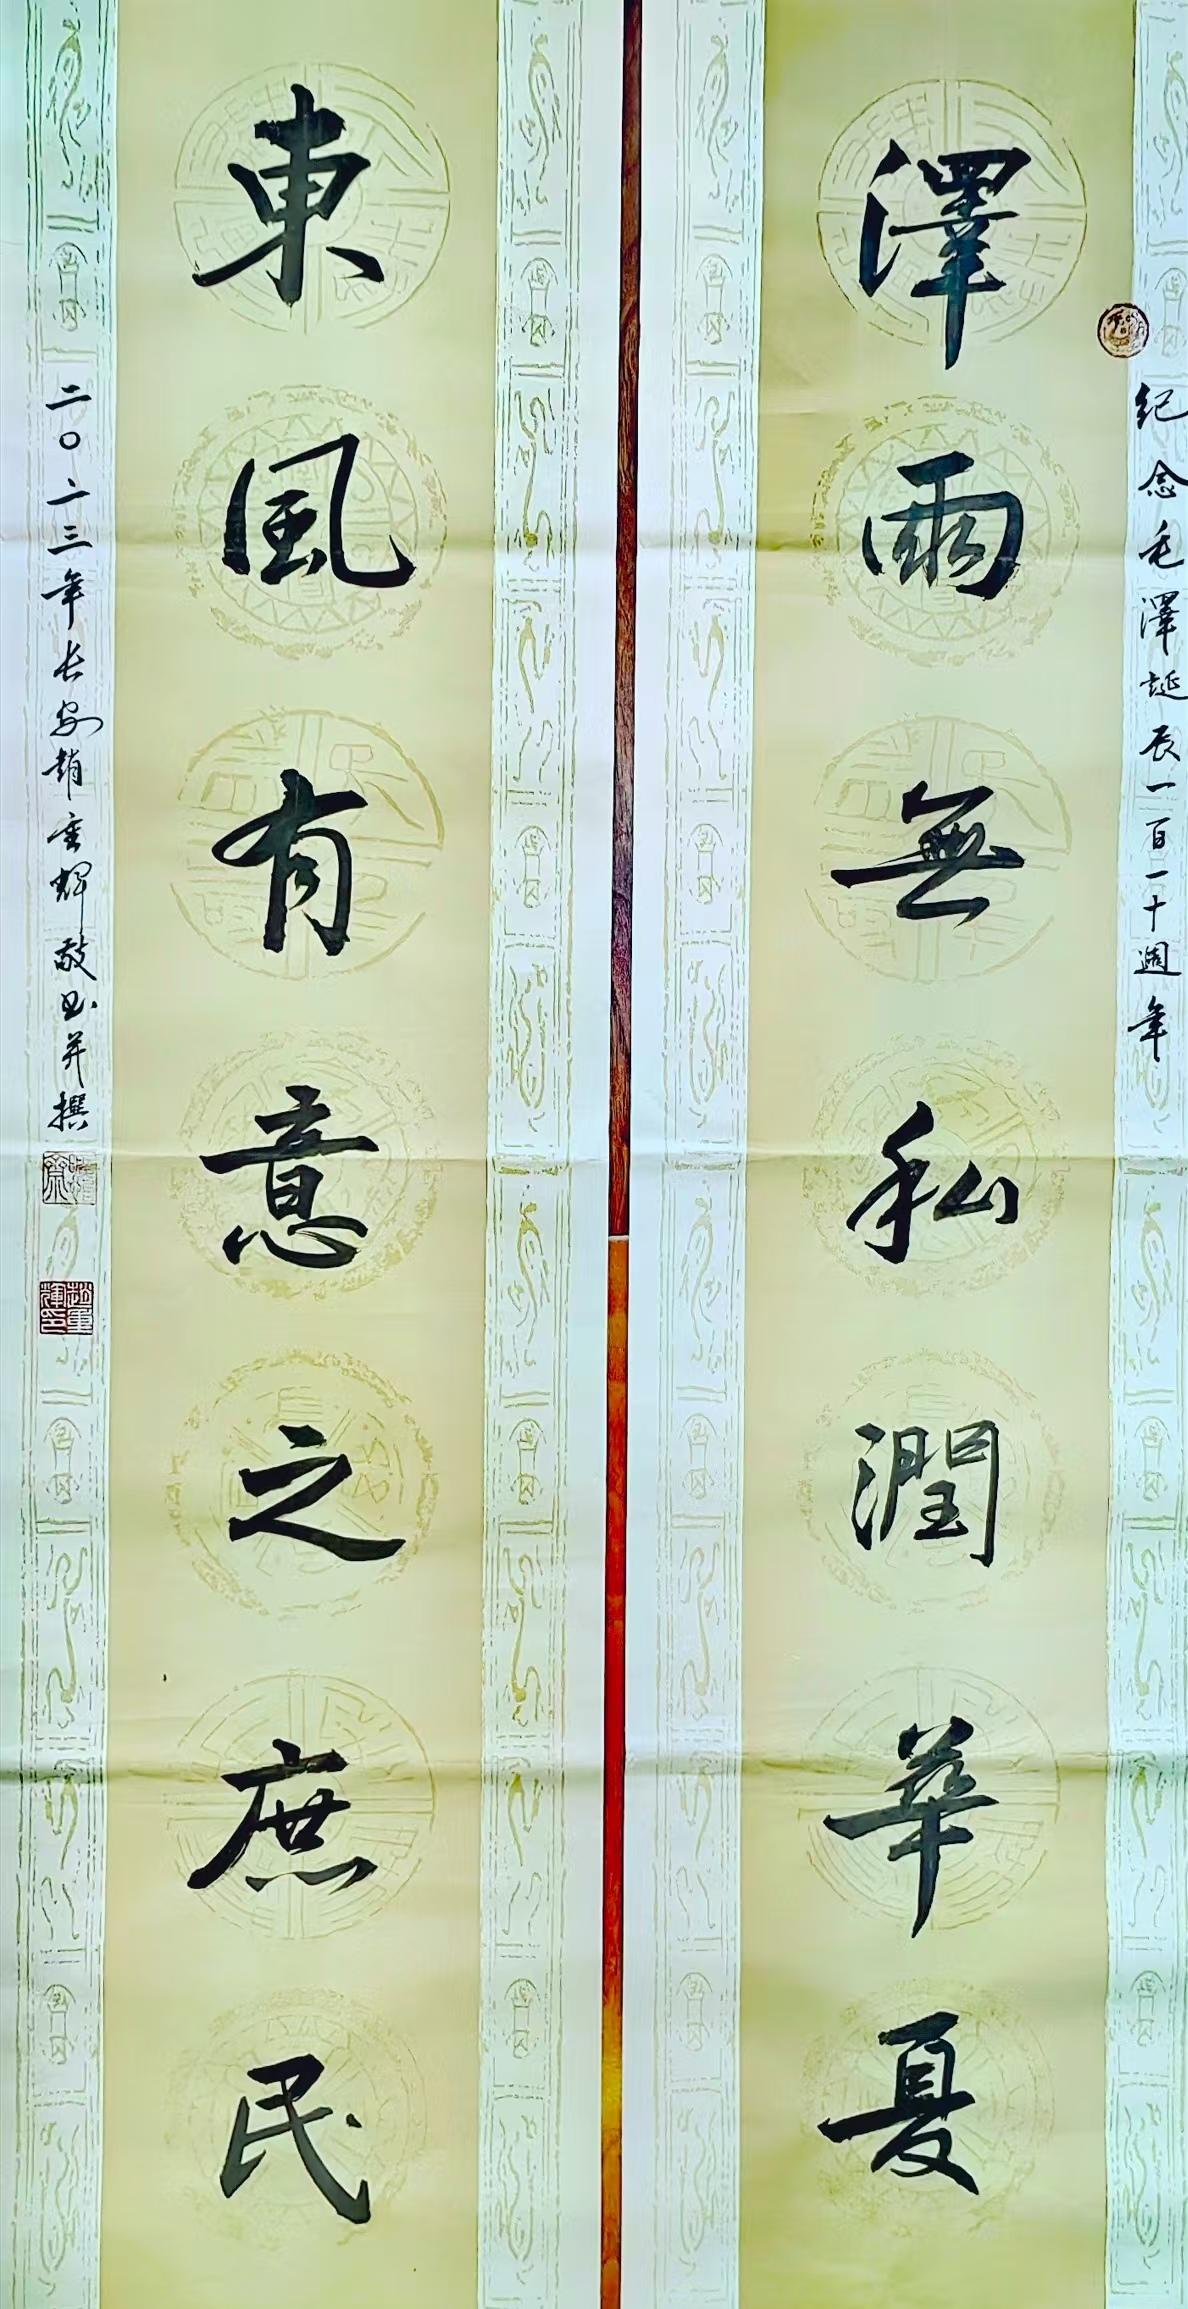 纪念毛澤誕辰一百一十週年
澤雨無私潤華夏
東風有意之庶民
二〇二三年长安趙重輝敬书并撰
趙重輝印